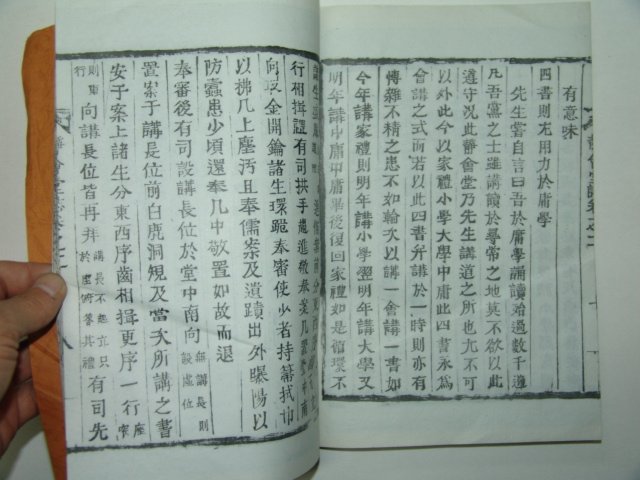 有意味
四書則尤用力於庸學
先生嘗自言曰吾於庸學誦讀殆過數千遍
凡吾黨之士雖講讀於尋常之地莫不欲以此
遵守况此靜會堂乃先生講道之所也尤不可
以外此今以家禮小學大學中庸此四書永爲
會講之式而若以此四書并講於一時則亦有
愽雜不精之患不如輪次以講一會講一書如
今年講家禮則明年講小學翌明年講大學又
明年講中庸中庸畢後復回家禮如是循環不
行相揖禮有司拱手
向啟金開鑰諸生環跪奉審使少者持箒拭巾
以拂几上塵汚且奉儒案及遺蹟出外曝陽以
防蠹患少頃還奉几中敬置如故而退
奉審後有司設講長位於堂中南向 無講長則設虛位
置案于講長位前白鹿洞規及當次所講之書
安于案上諸生分東西序齒相揖更序一行 座窄
則重行 向講長位皆再拜 講長不起立只於座俯答其禮 有司先